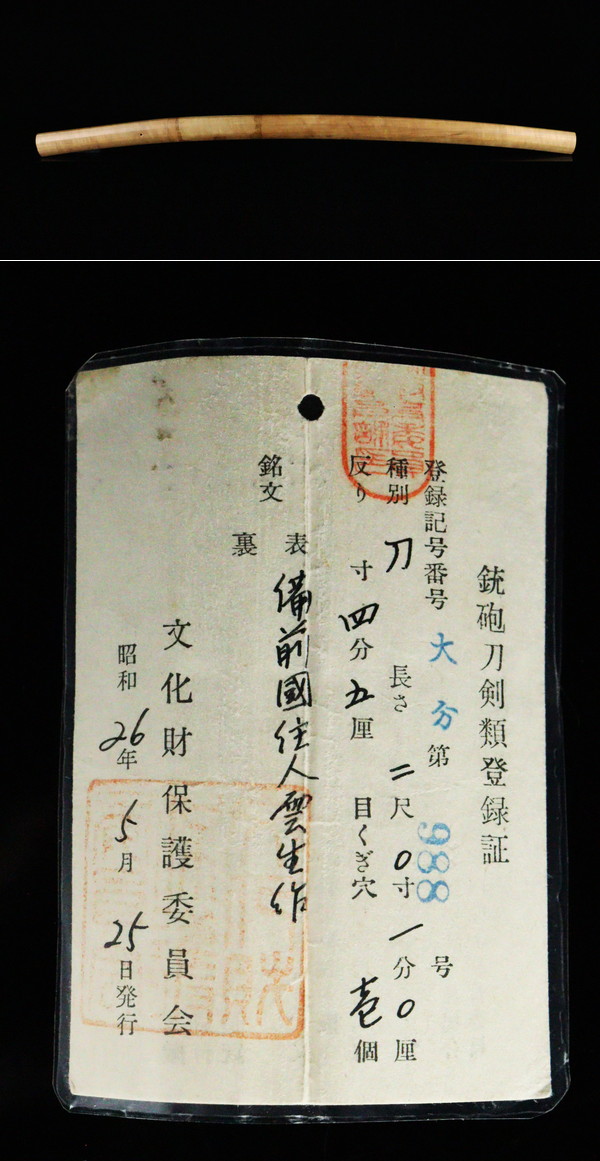 銃砲刀剣類登録証
登録記号番号 大分 第 988 号
種別 刀 長さ 二尺0寸一分0厘
反り 寸四分五厘 目くぎ穴 壱個
銘文 表 備前國住人雲生作
裏
文化財保護委員会
昭和26年5月25日発行